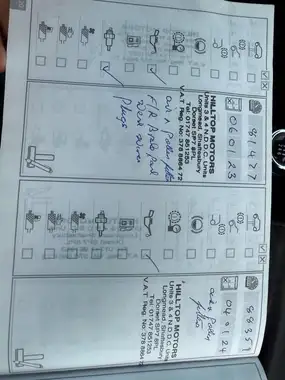 81477
060123
HILLTOP MOTORS
Units 3 & 4 N.D.D.C. Units
Longmead, Shaftesbury
Dorset SP7 8PL
Tel: 01747 851253
V.A.T. Reg. No: 378 8864 72
Air & Pollen filter
F/R Brake Pads
Next service
Plugs
88351
040124
Air & Pollen
filters
HILLTOP MOTORS
Units 3 & 4 N.D.D.C. Units
Longmead, Shaftesbury
Dorset SP7 8PL
Tel: 01747 851253
V.A.T. Reg. No: 378 8864 72